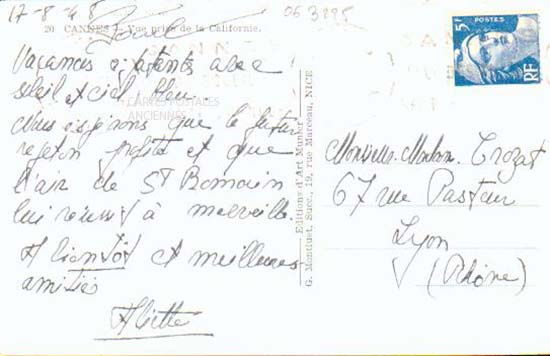 17-8-48
063225
20 CANNES - Vue prise de la Californie.
Vacances épatantes avec
soleil et ciel bleu.
Nous espérons que le futur
rejeton profite et que
l'air de St Romain
lui réussit à merveille.
A bientôt et meilleures
amitiés
CARTES POSTALES
ANCIENNES
Editions d'Art Munier
G. Mansuet, Succ., 19, rue Marceau, NICE
5F
POSTES
RF
Monsieur-Madame Crozat
67 rue Pasteur
Lyon
(Rhône)